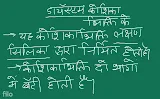 डायटम कोशिका
भित्ति के
→ यह कोशिकाभित्ति लक्षण
सिलिका द्वारा निर्मित होती है
→ कोशिकाभित्ति दो भागो
में बंटी होती है।
filo